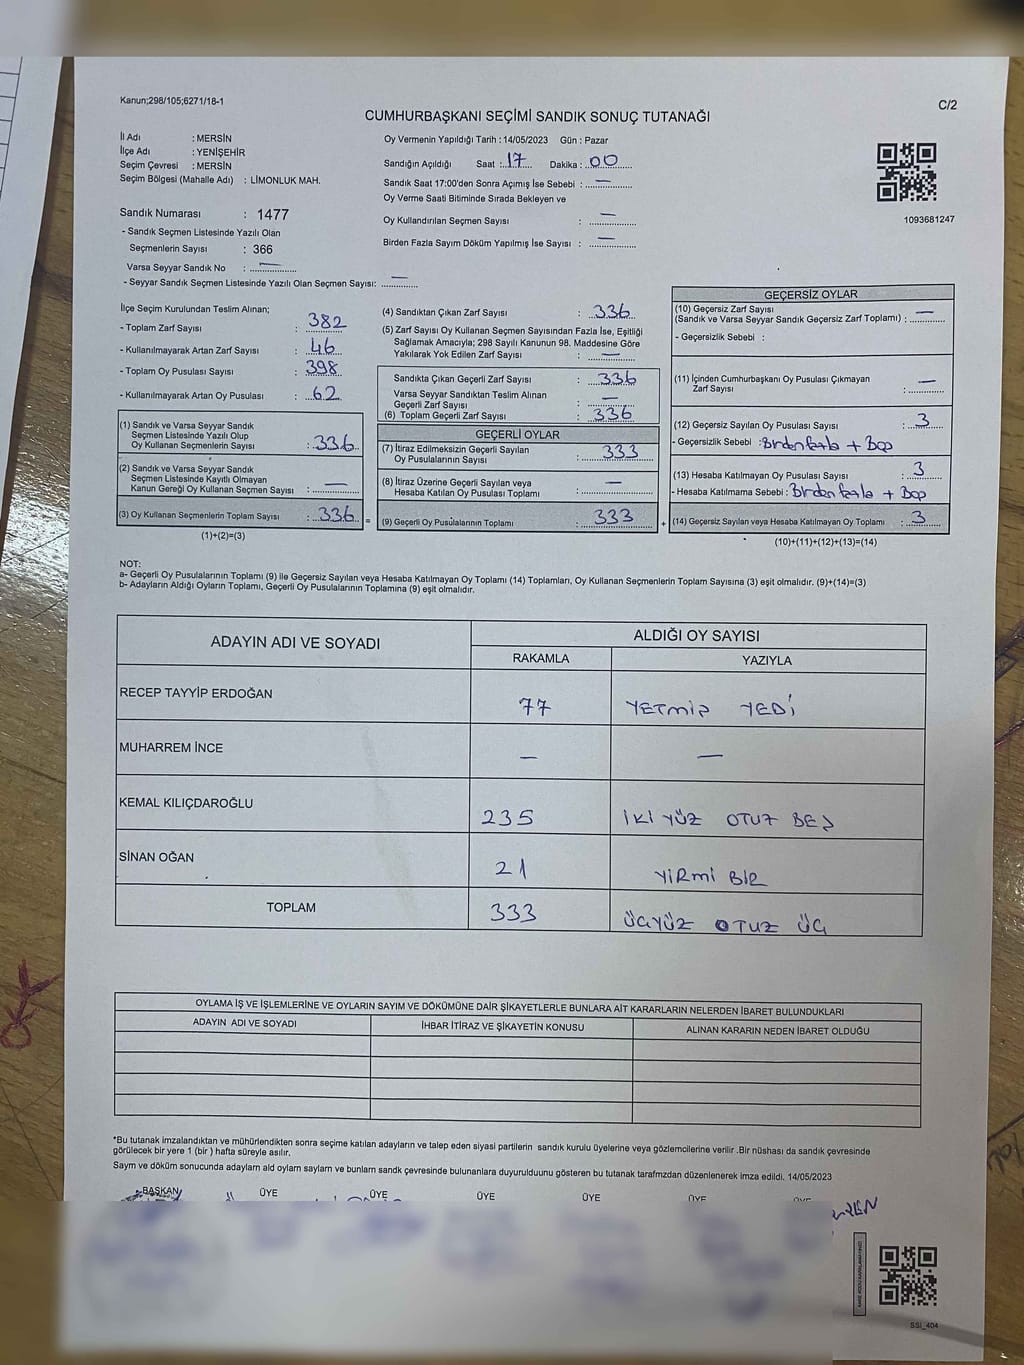 Kanun;298/105;6271/18-1
C/2
CUMHURBAŞKANI SEÇİMİ SANDIK SONUÇ TUTANAĞI
İl Adı : MERSİN
İlçe Adı : YENİŞEHİR
Seçim Çevresi : MERSİN
Seçim Bölgesi (Mahalle Adı) : LİMONLUK MAH.
Oy Vermenin Yapıldığı Tarih : 14/05/2023 Gün : Pazar
Sandığın Açıldığı Saat : 17 Dakika : 00
Sandık Saat 17:00'den Sonra Açımış İse Sebebi : —
Oy Verme Saati Bitiminde Sırada Bekleyen ve
Oy Kullandırılan Seçmen Sayısı : —
Birden Fazla Sayım Döküm Yapılmış İse Sayısı : —
1093681247
Sandık Numarası : 1477
- Sandık Seçmen Listesinde Yazılı Olan
Seçmenlerin Sayısı : 366
Varsa Seyyar Sandık No : —
- Seyyar Sandık Seçmen Listesinde Yazılı Olan Seçmen Sayısı: —
İlçe Seçim Kurulundan Teslim Alınan;
- Toplam Zarf Sayısı : 382
- Kullanılmayarak Artan Zarf Sayısı : 46
- Toplam Oy Pusulası Sayısı : 398
- Kullanılmayarak Artan Oy Pusulası : 62
(1) Sandık ve Varsa Seyyar Sandık
Seçmen Listesinde Yazılı Olup
Oy Kullanan Seçmenlerin Sayısı : 336
(2) Sandık ve Varsa Seyyar Sandık
Seçmen Listesinde Kayıtlı Olmayan
Kanun Gereği Oy Kullanan Seçmen Sayısı : —
(3) Oy Kullanan Seçmenlerin Toplam Sayısı : 336 =
(1)+(2)=(3)
(4) Sandıktan Çıkan Zarf Sayısı : 336
(5) Zarf Sayısı Oy Kullanan Seçmen Sayısından Fazla İse, Eşitliği
Sağlamak Amacıyla; 298 Sayılı Kanunun 98. Maddesine Göre
Yakılarak Yok Edilen Zarf Sayısı : —
Sandıkta Çıkan Geçerli Zarf Sayısı : 336
Varsa Seyyar Sandıktan Teslim Alınan
Geçerli Zarf Sayısı : —
(6) Toplam Geçerli Zarf Sayısı : 336
GEÇERLİ OYLAR
(7) İtiraz Edilmeksizin Geçerli Sayılan
Oy Pusulalarının Sayısı : 333
(8) İtiraz Üzerine Geçerli Sayılan veya
Hesaba Katılan Oy Pusulası Toplamı : —
(9) Geçerli Oy Pusulalarının Toplamı : 333 +
GEÇERSİZ OYLAR
(10) Geçersiz Zarf Sayısı
(Sandık ve Varsa Seyyar Sandık Geçersiz Zarf Toplamı) : —
- Geçersizlik Sebebi :
(11) İçinden Cumhurbaşkanı Oy Pusulası Çıkmayan
Zarf Sayısı : —
(12) Geçersiz Sayılan Oy Pusulası Sayısı : 3
- Geçersizlik Sebebi : Birden fazla + Boş
(13) Hesaba Katılmayan Oy Pusulası Sayısı : 3
- Hesaba Katılmama Sebebi : Birden fazla + Boş
(14) Geçersiz Sayılan veya Hesaba Katılmayan Oy Toplamı : 3
(10)+(11)+(12)+(13)=(14)
NOT:
a- Geçerli Oy Pusulalarının Toplamı (9) ile Geçersiz Sayılan veya Hesaba Katılmayan Oy Toplamı (14) Toplamları, Oy Kullanan Seçmenlerin Toplam Sayısına (3) eşit olmalıdır. (9)+(14)=(3)
b- Adayların Aldığı Oyların Toplamı, Geçerli Oy Pusulalarının Toplamına (9) eşit olmalıdır.
ADAYIN ADI VE SOYADI
ALDIĞI OY SAYISI
RAKAMLA YAZIYLA
RECEP TAYYİP ERDOĞAN 77 YETMİŞ YEDİ
MUHARREM İNCE — —
KEMAL KILIÇDAROĞLU 235 İKİ YÜZ OTUZ BEŞ
SİNAN OĞAN 21 YİRMİ BİR
TOPLAM 333 ÜÇYÜZ OTUZ ÜÇ
OYLAMA İŞ VE İŞLEMLERİNE VE OYLARIN SAYIM VE DÖKÜMÜNE DAİR ŞİKAYETLERLE BUNLARA AİT KARARLARIN NELERDEN İBARET BULUNDUKLARI
ADAYIN ADI VE SOYADI İHBAR İTİRAZ VE ŞİKAYETİN KONUSU ALINAN KARARIN NEDEN İBARET OLDUĞU
*Bu tutanak imzalandıktan ve mühürlendikten sonra seçime katılan adayların ve talep eden siyasi partilerin sandık kurulu üyelerine veya gözlemcilerine verilir .Bir nüshası da sandık çevresinde
görülecek bir yere 1 (bir ) hafta süreyle asılır.
Saym ve döküm sonucunda adaylarn ald oylarn saylarn ve bunlarn sandk çevresinde bulunanlara duyurulduunu gösteren bu tutanak tarafmzdan düzenlenerek imza edildi. 14/05/2023
BAŞKAN ÜYE ÜYE ÜYE ÜYE ÜYE ÜYE
SSI_404